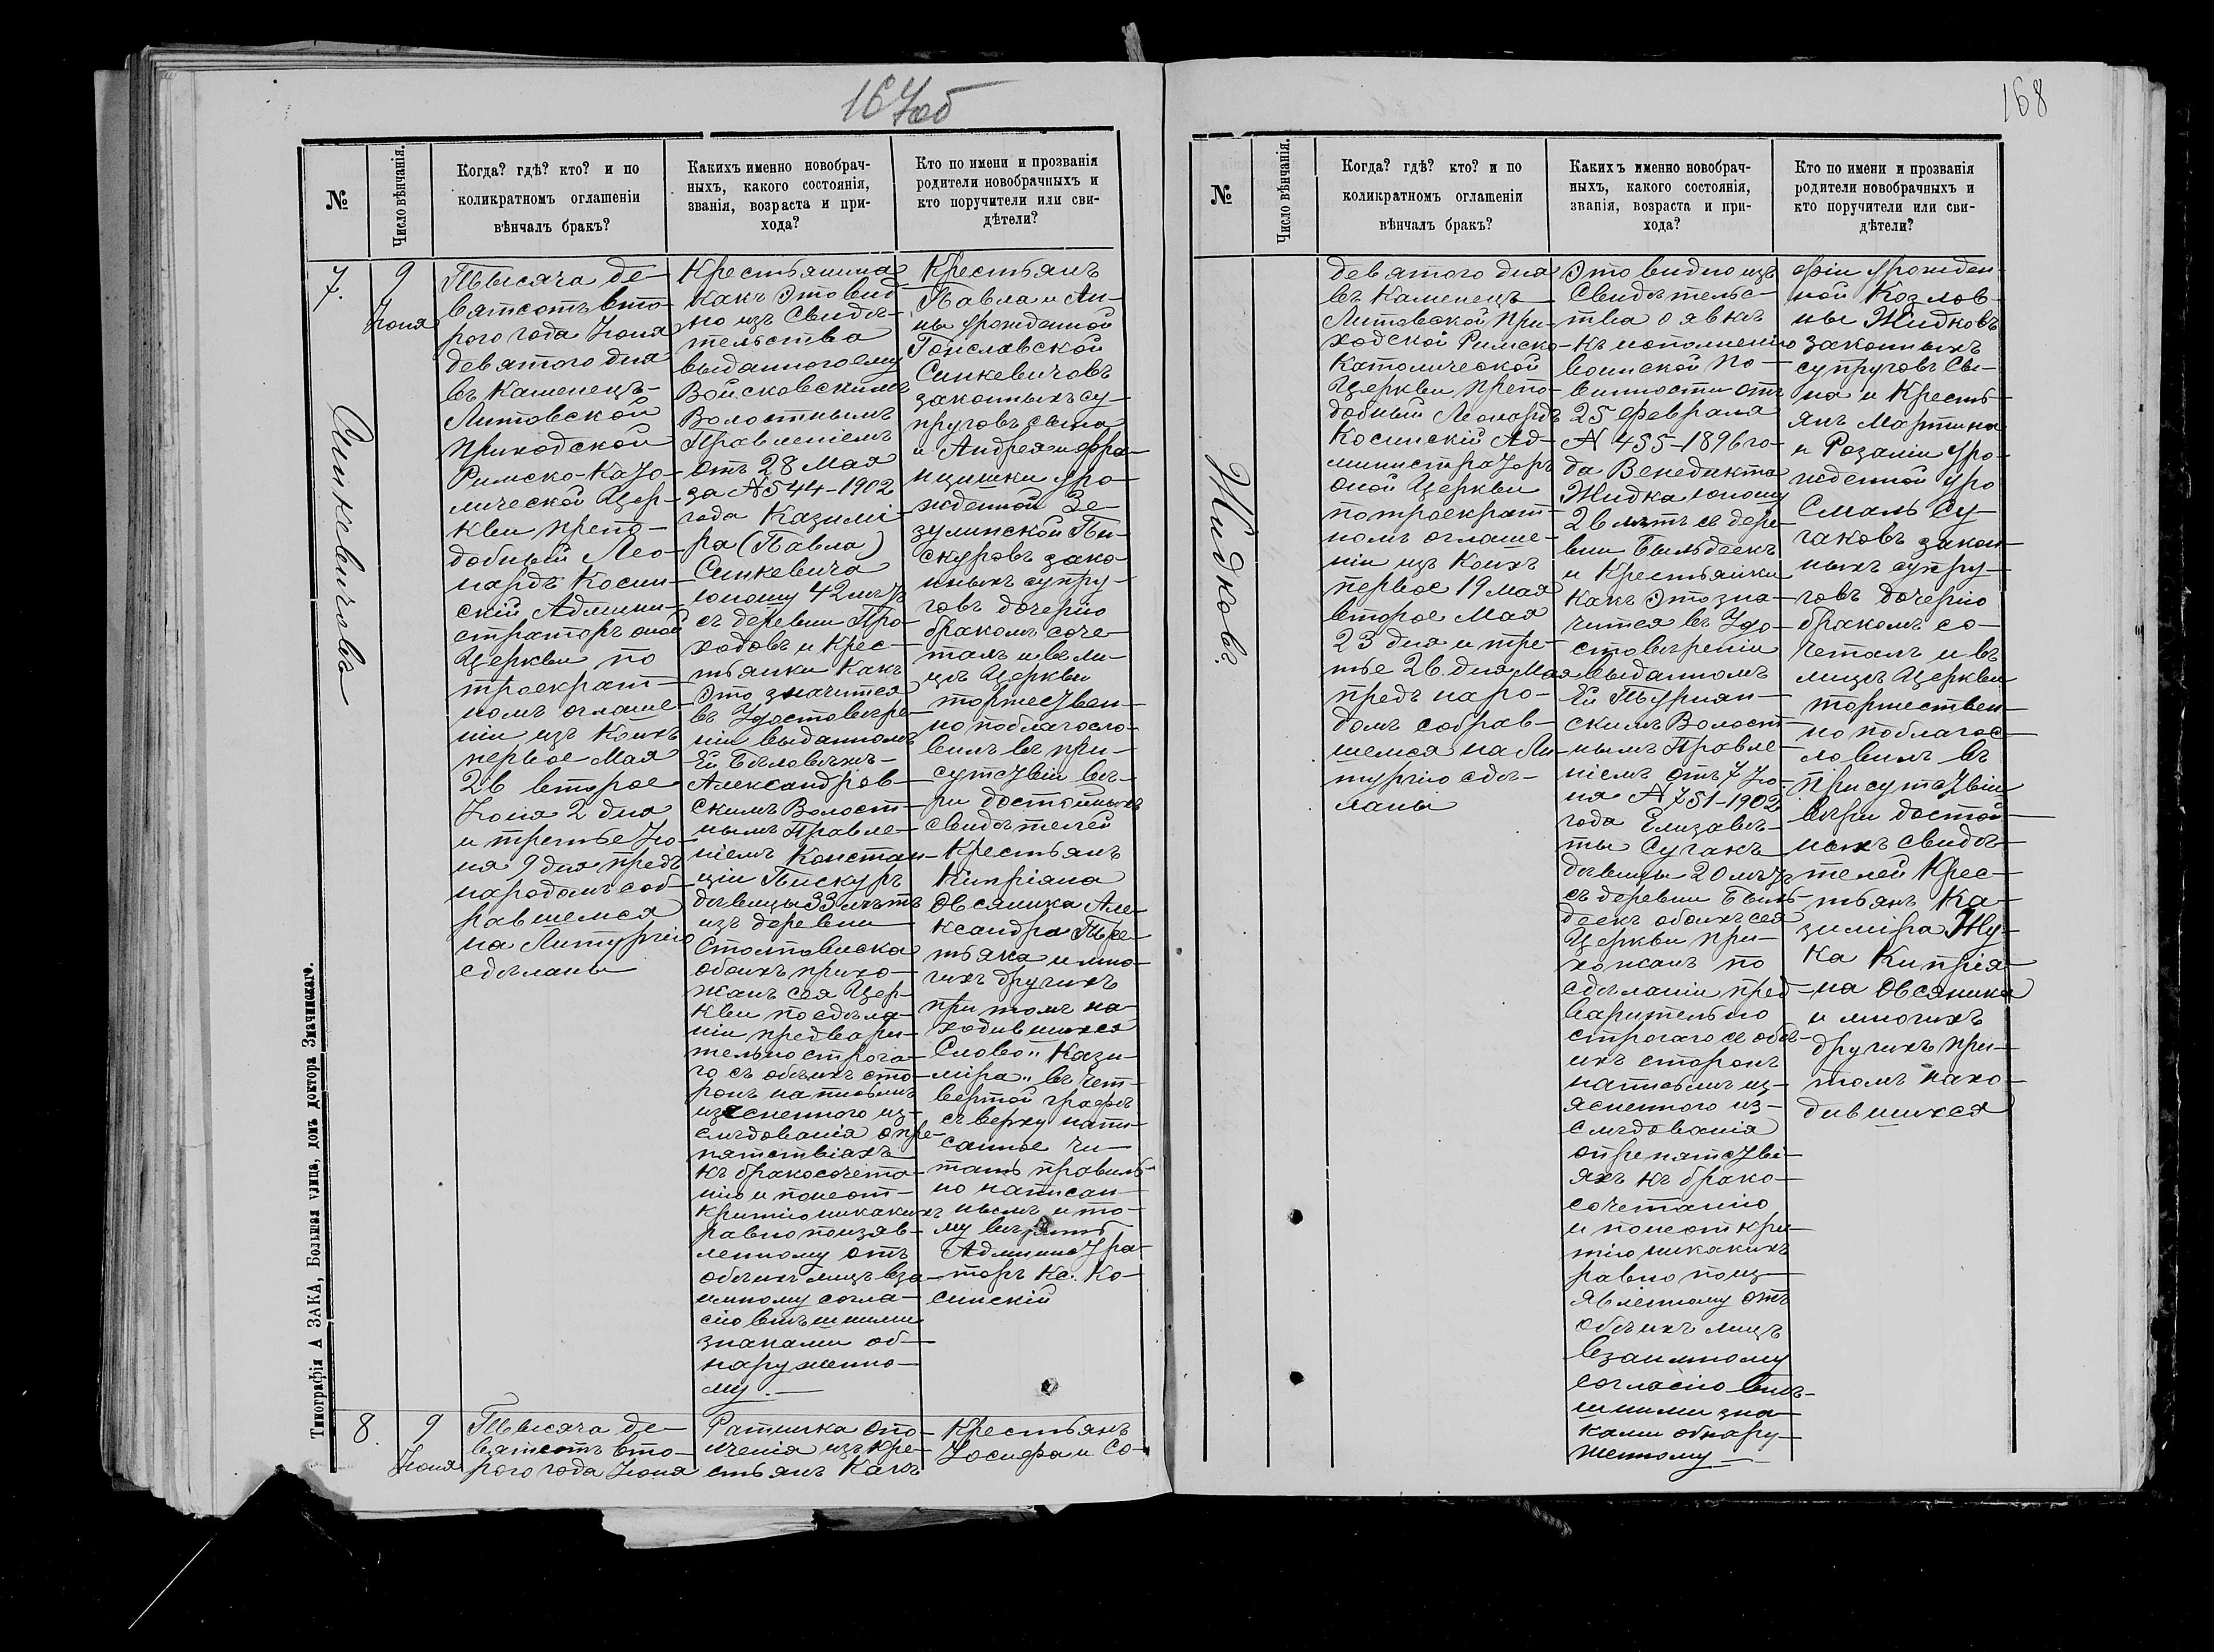 167об
№
Число вѣнчанія.
Когда? гдѣ? кто? и по
коликратномъ оглашеніи
вѣнчалъ бракъ?
Какихъ именно новобрач-
ныхъ, какого состоянія,
званія, возраста и при-
хода?
Кто по имени и прозванія
родители новобрачныхъ и
кто поручители или сви-
дѣтели?
7.
Синкевичовъ
9
Іюня
Тысяча де-
вятсотъ вто-
рого года Іюня
девятого дня
въ Каменецъ-
Литовской
приходской
Римско-Като-
лической Цер-
кви препо-
добный Лео-
нардъ Косин-
скій Админи-
страторъ оной
Церкви по
троекрат-
номъ оглаше-
ніи изъ коихъ
первое Мая
26 второе
Іюня 2 дня
и третье Ію-
ня 9 дня предъ
народомъ соб-
равшемся
на Литургію
сдѣланы
Крестьянина
какъ это вид-
но изъ Свидѣ-
тельства
выданного ему
Войсковскимъ
Волостнымъ
Правленіемъ
отъ 28 Мая
за N 544-1902
года Казимі-
ра (Павла)
Синкевича
юношу 42 лѣтъ
съ деревни Про-
ходовъ и Крес-
тьянки какъ
это значится
въ Удостовѣре-
ніи выданномъ
Ей Бѣловѣжъ-
Александров-
скимъ Волост-
нымъ Правле-
ніемъ Констан-
ціи Пискуръ
дѣвицы 33 лѣтъ
изъ деревни
Столповиска
обоихъ прихо-
жанъ сея Цер-
кви по сдѣла-
ніи предвари-
тельно строга-
го съ обѣихъ сто-
ронъ на письмѣ
изясненного из-
слѣдованія о пре-
пятствіахъ
къ бракосочета-
нію и понеот-
крытію никакихъ
равно поизяв-
ленному отъ
обѣихъ лицъ вза-
имному согла-
сію внѣшними
знаками об-
наруженно-
му.—
Крестьянъ
Павла и Ан-
ны урожденной
Гонславской
Синкевичовъ
законныхъ су-
пруговъ сына
и Андрея и Фра-
нцишки уро-
жденной Зе-
зулинской Пи-
скуровъ зако-
нныхъ супру-
говъ дочерію
бракомъ соче-
талъ и въ ли-
цѣ Церкви
торжествен-
но поблагосло-
вилъ въ при-
сутствіи вѣ-
ри достойныхъ
свидѣтелей
Крестьянъ
Кипріяна
Овсяника Але-
ксандра Тре-
тьяка и мно-
гихъ другихъ
при томъ на-
ходившихся
Слово „Кази-
міра" въ чет-
вертой графѣ
съ верху напи-
санное чи-
тать правиль-
но написан-
нымъ и то-
му вѣрить
Администра-
торъ Кс. Ко-
синскій
8.
9
Іюня
Тысяча де-
вятсотъ вто-
рого года Іюня
Ратника опо-
лченія изъ кре-
стьянъ какъ
Крестьянъ
Іосифа и Со-
Типографія А ЗАКА, Большая улица, домъ доктора Значинскаго.
168
№
Число вѣнчанія.
Когда? гдѣ? кто? и по
коликратномъ оглашеніи
вѣнчалъ бракъ?
Какихъ именно новобрач-
ныхъ, какого состоянія,
званія, возраста и при-
хода?
Кто по имени и прозванія
родители новобрачныхъ и
кто поручители или сви-
дѣтели?
Жидковъ.
девятого дня
въ Каменецъ-
Литовской при-
ходской Римско-
Католической
Церкви препо-
добный Леонардъ
Косинскій Ад-
министраторъ
оной Церкви
по троекрат-
номъ оглаше-
ніи изъ коихъ
первое 19 мая
второе Мая
23 дня и тре-
тье 26 дня Мая
предъ наро-
домъ собрав-
шемся на Ли-
тургію сдѣ-
ланы
это видно изъ
Свидѣтельс-
тва о явкѣ
къ исполненію
воинской по-
винности отъ
25 Февраля
N 455-1896 го-
да Венедикта
Жидка юношу
26 лѣтъ съ дере-
вни Быльдеекъ
и Крестьянки
какъ это зна-
чится въ Удо-
стовѣреніи
выданномъ
Ей Турнян-
скимъ Волост-
нымъ Правле-
ніемъ отъ 7 Ію-
ня N 751-1902
года Елизаве-
ты Сугакъ
дѣвицы 20 лѣтъ
съ деревни Быль-
деекъ обоихъ сея
Церкви при-
хожанъ по
сдѣланіи пред-
варительно
строгаго съ обѣ-
ихъ сторонъ
на письмѣ из-
ясненного из-
слѣдованія
о препятстві-
яхъ къ брако-
сочетанію
и понеоткры-
тію никакихъ
равно поиз-
явленному отъ
обѣихъ лицъ
взаимному
согласію внѣ-
шними зна-
ками обнару-
женному —
фіи урожден-
ной Козлов-
ны Жидковъ
законныхъ
супруговъ сы-
на и Кресть-
янъ Мартина
и Розаліи уро-
жденной уро
Смаль Су-
гаковъ закон-
ныхъ супру-
говъ дочерію
бракомъ со-
четалъ и въ
лицѣ Церкви
торжествен-
но поблагос-
ловилъ въ
присутствіи
вѣри достой-
ныхъ свидѣ-
телей Крес-
тьянъ Ка-
зиміра Жу-
ка Кипрія-
на Овсяника
и многихъ
другихъ при
томъ нахо-
дившихся